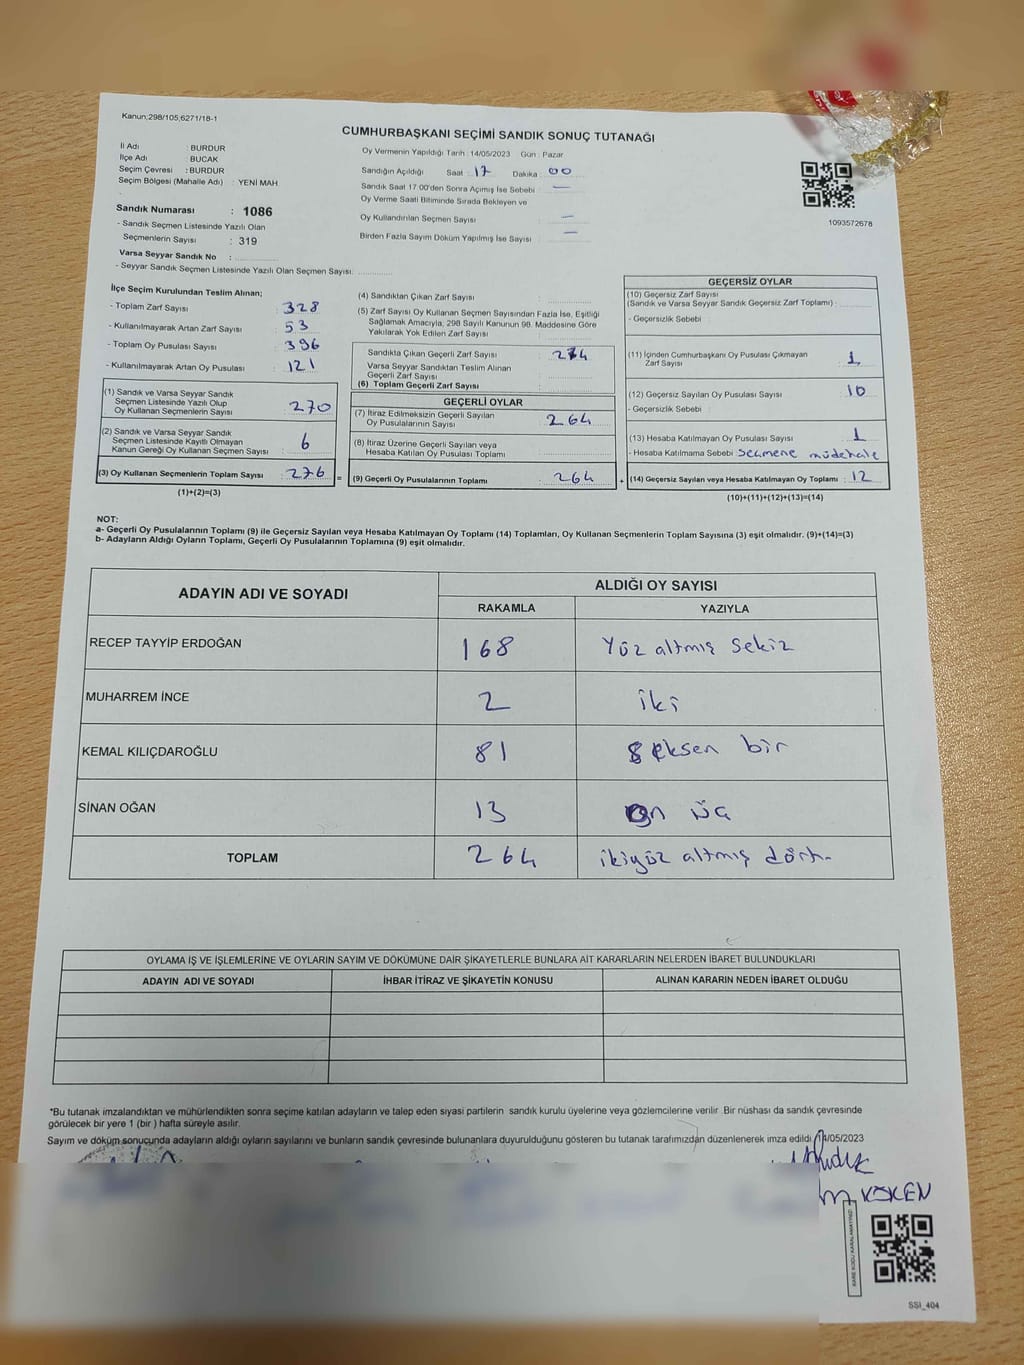 Kanun;298/105,6271/18-1
CUMHURBAŞKANI SEÇİMİ SANDIK SONUÇ TUTANAĞI
İl Adı : BURDUR
İlçe Adı : BUCAK
Seçim Çevresi : BURDUR
Seçim Bölgesi (Mahalle Adı) : YENİ MAH
Sandık Numarası : 1086
- Sandık Seçmen Listesinde Yazılı Olan
Seçmenlerin Sayısı : 319
Varsa Seyyar Sandık No :
- Seyyar Sandık Seçmen Listesinde Yazılı Olan Seçmen Sayısı:
Oy Vermenin Yapıldığı Tarih : 14/05/2023 Gün : Pazar
Sandığın Açıldığı Saat : 17 Dakika : 00
Sandık Saat 17:00'den Sonra Açımış İse Sebebi : —
Oy Verme Saati Bitiminde Sırada Bekleyen ve
Oy Kullandırılan Seçmen Sayısı : —
Birden Fazla Sayım Döküm Yapılmış İse Sayısı : —
1093572678
İlçe Seçim Kurulundan Teslim Alınan;
- Toplam Zarf Sayısı : 328
- Kullanılmayarak Artan Zarf Sayısı : 53
- Toplam Oy Pusulası Sayısı : 396
- Kullanılmayarak Artan Oy Pusulası : 121
(1) Sandık ve Varsa Seyyar Sandık
Seçmen Listesinde Yazılı Olup
Oy Kullanan Seçmenlerin Sayısı : 270
(2) Sandık ve Varsa Seyyar Sandık
Seçmen Listesinde Kayıtlı Olmayan
Kanun Gereği Oy Kullanan Seçmen Sayısı : 6
(3) Oy Kullanan Seçmenlerin Toplam Sayısı : 276
(1)+(2)=(3)
(4) Sandıktan Çıkan Zarf Sayısı :
(5) Zarf Sayısı Oy Kullanan Seçmen Sayısından Fazla İse, Eşitliği
Sağlamak Amacıyla, 298 Sayılı Kanunun 98. Maddesine Göre
Yakılarak Yok Edilen Zarf Sayısı :
Sandıkta Çıkan Geçerli Zarf Sayısı : 274
Varsa Seyyar Sandıktan Teslim Alınan
Geçerli Zarf Sayısı :
(6) Toplam Geçerli Zarf Sayısı :
GEÇERLİ OYLAR
(7) İtiraz Edilmeksizin Geçerli Sayılan
Oy Pusulalarının Sayısı : 264
(8) İtiraz Üzerine Geçerli Sayılan veya
Hesaba Katılan Oy Pusulası Toplamı :
= (9) Geçerli Oy Pusulalarının Toplamı : 264
GEÇERSİZ OYLAR
(10) Geçersiz Zarf Sayısı
(Sandık ve Varsa Seyyar Sandık Geçersiz Zarf Toplamı) :
- Geçersizlik Sebebi :
(11) İçinden Cumhurbaşkanı Oy Pusulası Çıkmayan
Zarf Sayısı : 1
(12) Geçersiz Sayılan Oy Pusulası Sayısı : 10
- Geçersizlik Sebebi :
(13) Hesaba Katılmayan Oy Pusulası Sayısı : 1
- Hesaba Katılmama Sebebi : Seçmene müdehale
+ (14) Geçersiz Sayılan veya Hesaba Katılmayan Oy Toplamı : 12
(10)+(11)+(12)+(13)=(14)
NOT:
a- Geçerli Oy Pusulalarının Toplamı (9) ile Geçersiz Sayılan veya Hesaba Katılmayan Oy Toplamı (14) Toplamları, Oy Kullanan Seçmenlerin Toplam Sayısına (3) eşit olmalıdır. (9)+(14)=(3)
b- Adayların Aldığı Oyların Toplamı, Geçerli Oy Pusulalarının Toplamına (9) eşit olmalıdır.
ADAYIN ADI VE SOYADI ALDIĞI OY SAYISI
RAKAMLA YAZIYLA
RECEP TAYYİP ERDOĞAN 168 Yüz altmış sekiz
MUHARREM İNCE 2 iki
KEMAL KILIÇDAROĞLU 81 Seksen bir
SİNAN OĞAN 13 on üç
TOPLAM 264 ikiyüz altmış dört.
OYLAMA İŞ VE İŞLEMLERİNE VE OYLARIN SAYIM VE DÖKÜMÜNE DAİR ŞİKAYETLERLE BUNLARA AİT KARARLARIN NELERDEN İBARET BULUNDUKLARI
ADAYIN ADI VE SOYADI İHBAR İTİRAZ VE ŞİKAYETİN KONUSU ALINAN KARARIN NEDEN İBARET OLDUĞU
*Bu tutanak imzalandıktan ve mühürlendikten sonra seçime katılan adayların ve talep eden siyasi partilerin sandık kurulu üyelerine veya gözlemcilerine verilir. Bir nüshası da sandık çevresinde
görülecek bir yere 1 (bir ) hafta süreyle asılır.
Sayım ve döküm sonucunda adayların aldığı oyların sayılarını ve bunların sandık çevresinde bulunanlara duyurulduğunu gösteren bu tutanak tarafımızdan düzenlenerek imza edildi. 14/05/2023
KÖKEN
KARE KODU KARALAMAYINIZ!
SSI_404